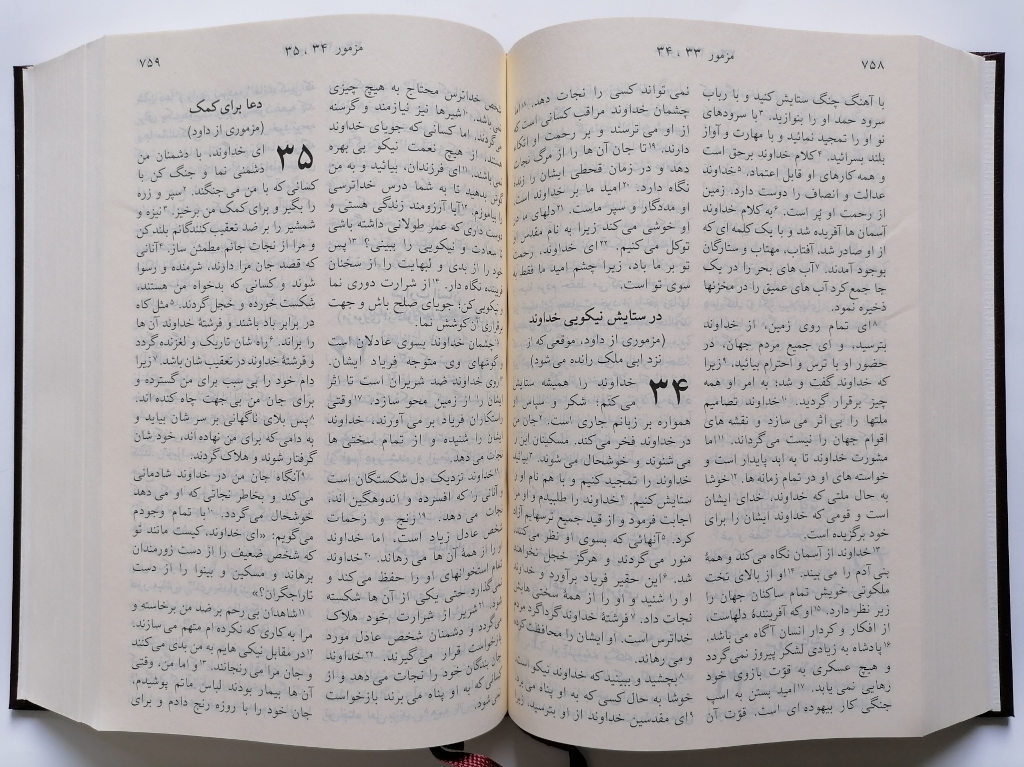 ۷۵۸
مزمور ۳۳ ، ۳۴
با آهنگ چنگ ستایش کنید و با رباب
سرود حمد او را بنوازید. ۳با سرودهای
نو او را تمجید نمائید و با مهارت و آواز
بلند بسرائید. ۴کلام خداوند برحق است
و همه کارهای او قابل اعتماد. ۵خداوند
عدالت و انصاف را دوست دارد. زمین
از رحمت او پُر است. ۶به کلام خداوند
آسمان ها آفریده شد و با یک کلمه ای که
از او صادر شد، آفتاب، مهتاب و ستارگان
بوجود آمدند. ۷آب های بحر را در یک
جا جمع کرد آب های عمیق را در مخزنها
ذخیره نمود.
۸ای تمام روی زمین، از خداوند
بترسید، و ای جمیع مردم جهان، در
حضور او با ترس و احترام بیائید، ۹زیرا
که خداوند گفت و شد؛ به امر او همه
چیز برقرار گردید. ۱۰خداوند تصامیم
ملتها را بی اثر می سازد و نقشه های
اقوام جهان را نیست می‌گرداند. ۱۱اما
مشورت خداوند تا به ابد پایدار است و
خواسته های او در تمام زمانه ها. ۱۲خوشا
به حال ملتی که خداوند، خدای ایشان
است و قومی که خداوند ایشان را برای
خود برگزیده است.
۱۳خداوند از آسمان نگاه می‌کند و همهٔ
بنی آدم را می بیند. ۱۴او از بالای تخت
ملکوتی خویش تمام ساکنان جهان را
زیر نظر دارد. ۱۵او که آفرینندهٔ دلهاست،
از افکار و کردار انسان آگاه می باشد.
۱۶پادشاه به زیادی لشکر پیروز نمی‌گردد
و هیچ عسکری به قوّت بازوی خود
رهایی نمی یابد. ۱۷امید بستن به اسپ
جنگی کار بیهوده ای است. قوّت آن
نمی تواند کسی را نجات دهد. ۱۸اما
چشمان خداوند مراقب کسانی است که
از او می ترسند و بر رحمت او اتکا
دارند. ۱۹تا جان آن ها را از مرگ نجات
دهد و در زمان قحطی ایشان را زنده
نگاه دارد. ۲۰امید ما بر خداوند است.
او مددگار و سپر ماست. ۲۱دلهای ما در
او خوشی می‌کند زیرا به نام مقدس او
توکل می‌کنیم. ۲۲ای خداوند، رحمت
تو بر ما باد، زیرا چشم امید ما فقط به
سوی تو است.
در ستایش نیکویی خداوند
(مزموری از داود، موقعی که از
نزد ابی ملک رانده می شود)
۳۴ خداوند را همیشه ستایش
می‌کنم؛ شکر و سپاس او
همواره بر زبانم جاری است. ۲جان من
در خداوند فخر می‌کند. مسکینان این را
می شنوند و خوشحال می شوند. ۳بیائید
خداوند را تمجید کنیم و با هم نام او را
ستایش کنیم. ۴خداوند را طلبیدم و او مرا
اجابت فرمود و از قید جمیع ترسهایم آزاد
کرد. ۵آنهائی که بسوی او نظر می‌کنند،
منور می‌گردند و هرگز خجل نخواهند
شد. ۶این حقیر فریاد برآورد و خداوند
او را شنید و او را از همهٔ سختی هایش
نجات داد. ۷فرشتهٔ خداوند گرداگرد مردم
خداترس است. او ایشان را محافظت کرده
و می رهاند.
۸بچشید و ببینید که خداوند نیکو است.
خوشا به حال کسی که به او پناه می برد.
۹ای مقدسین خداوند از او بترسید، زیرا
مزمور ۳۴ ، ۳۵
۷۵۹
شخص خداترس محتاج به هیچ چیزی
نمی باشد. ۱۰شیرها نیز نیازمند و گرسنه
می‌گردند، اما کسانی که جویای خداوند
هستند، از هیچ نعمت نیکو بی بهره
نمی باشند. ۱۱ای فرزندان، بیائید و به من
گوش بدهید تا به شما درس خداترسی
را بیاموزم. ۱۲آیا آرزومند زندگی هستی و
دوست داری که عمر طولانی داشته باشی
تا سعادت و نیکویی را ببینی؟ ۱۳پس
خود را از بدی و لبهایت را از سخنان
فریبنده نگاه دار. ۱۴از شرارت دوری نما
و نیکویی کن؛ جویای صلح باش و جهت
برقراری آن کوشش نما.
۱۵چشمان خداوند بسوی عادلان است
و گوشهای وی متوجه فریاد ایشان.
۱۶روی خداوند ضد شریران است تا اثر
ایشان را از زمین محو سازد. ۱۷وقتی
راستکاران فریاد بر می آورند، خداوند
ایشان را شنیده و از تمام سختی ها
نجات می دهد.
۱۸خداوند نزدیک دل شکستگان است
و آنانی را که افسرده و اندوهگین اند،
نجات می دهد. ۱۹رنج و زحمات
شخص عادل زیاد است، اما خداوند
او را از همهٔ آن ها می رهاند. ۲۰خداوند
تمام استخوانهای او را حفظ می‌کند و
نمی‌گذارد حتی یکی از آن ها شکسته
شود. ۲۱شریر از شرارت خود هلاک
می‌گردد و دشمنان شخص عادل مورد
بازخواست قرار می‌گیرند. ۲۲خداوند
جان بندگان خود را نجات می دهد و از
کسانی که به او پناه می برند بازخواست
نمی شود.
دعا برای کمک
(مزموری از داود)
۳۵ ای خداوند، با دشمنان من
دشمنی نما و جنگ کن با
کسانی که با من می جنگند. ۲سپر و زره
را بگیر و برای کمک من برخیز. ۳نیزه و
شمشیر را بر ضد تعقیب‌کنندگانم بلند کن
و مرا از نجات جانم مطمئن ساز. ۴آنانی
که قصد جان مرا دارند، شرمنده و رسوا
شوند و کسانی که بدخواه من هستند،
شکست خورده و خجل گردند. ۵مثل کاه
در برابر باد باشند و فرشتهٔ خداوند آن ها
را براند. ۶راه شان تاریک و لغزنده گردد
و فرشتهٔ خداوند در تعقیب شان باشد. ۷زیرا
دام خود را بی سبب برای من گسترده و
برای جان من بی جهت چاه کنده اند.
۸پس بلای ناگهانی بر سر شان بیاید و
به دامی که برای من نهاده اند، خود شان
گرفتار شوند و هلاک گردند.
۹آنگاه جان من در خداوند شادمانی
می‌کند و بخاطر نجاتی که او می دهد
خوشحال می‌گردد. ۱۰با تمام وجودم
می‌گویم: «ای خداوند، کیست مانند تو
که شخص ضعیف را از دست زورمندان
برهاند و مسکین و بینوا را از دست
تاراجگران؟»
۱۱شاهدان بی رحم بر ضد من برخاسته و
مرا به کاری که نکرده ام متهم می سازند.
۱۲در مقابل نیکی هایم به من بدی می‌کنند
و جان مرا می رنجانند. ۱۳و اما من، وقتی
آن ها بیمار بودند لباس ماتم پوشیدم،
جان خود را با روزه رنج دادم و برای